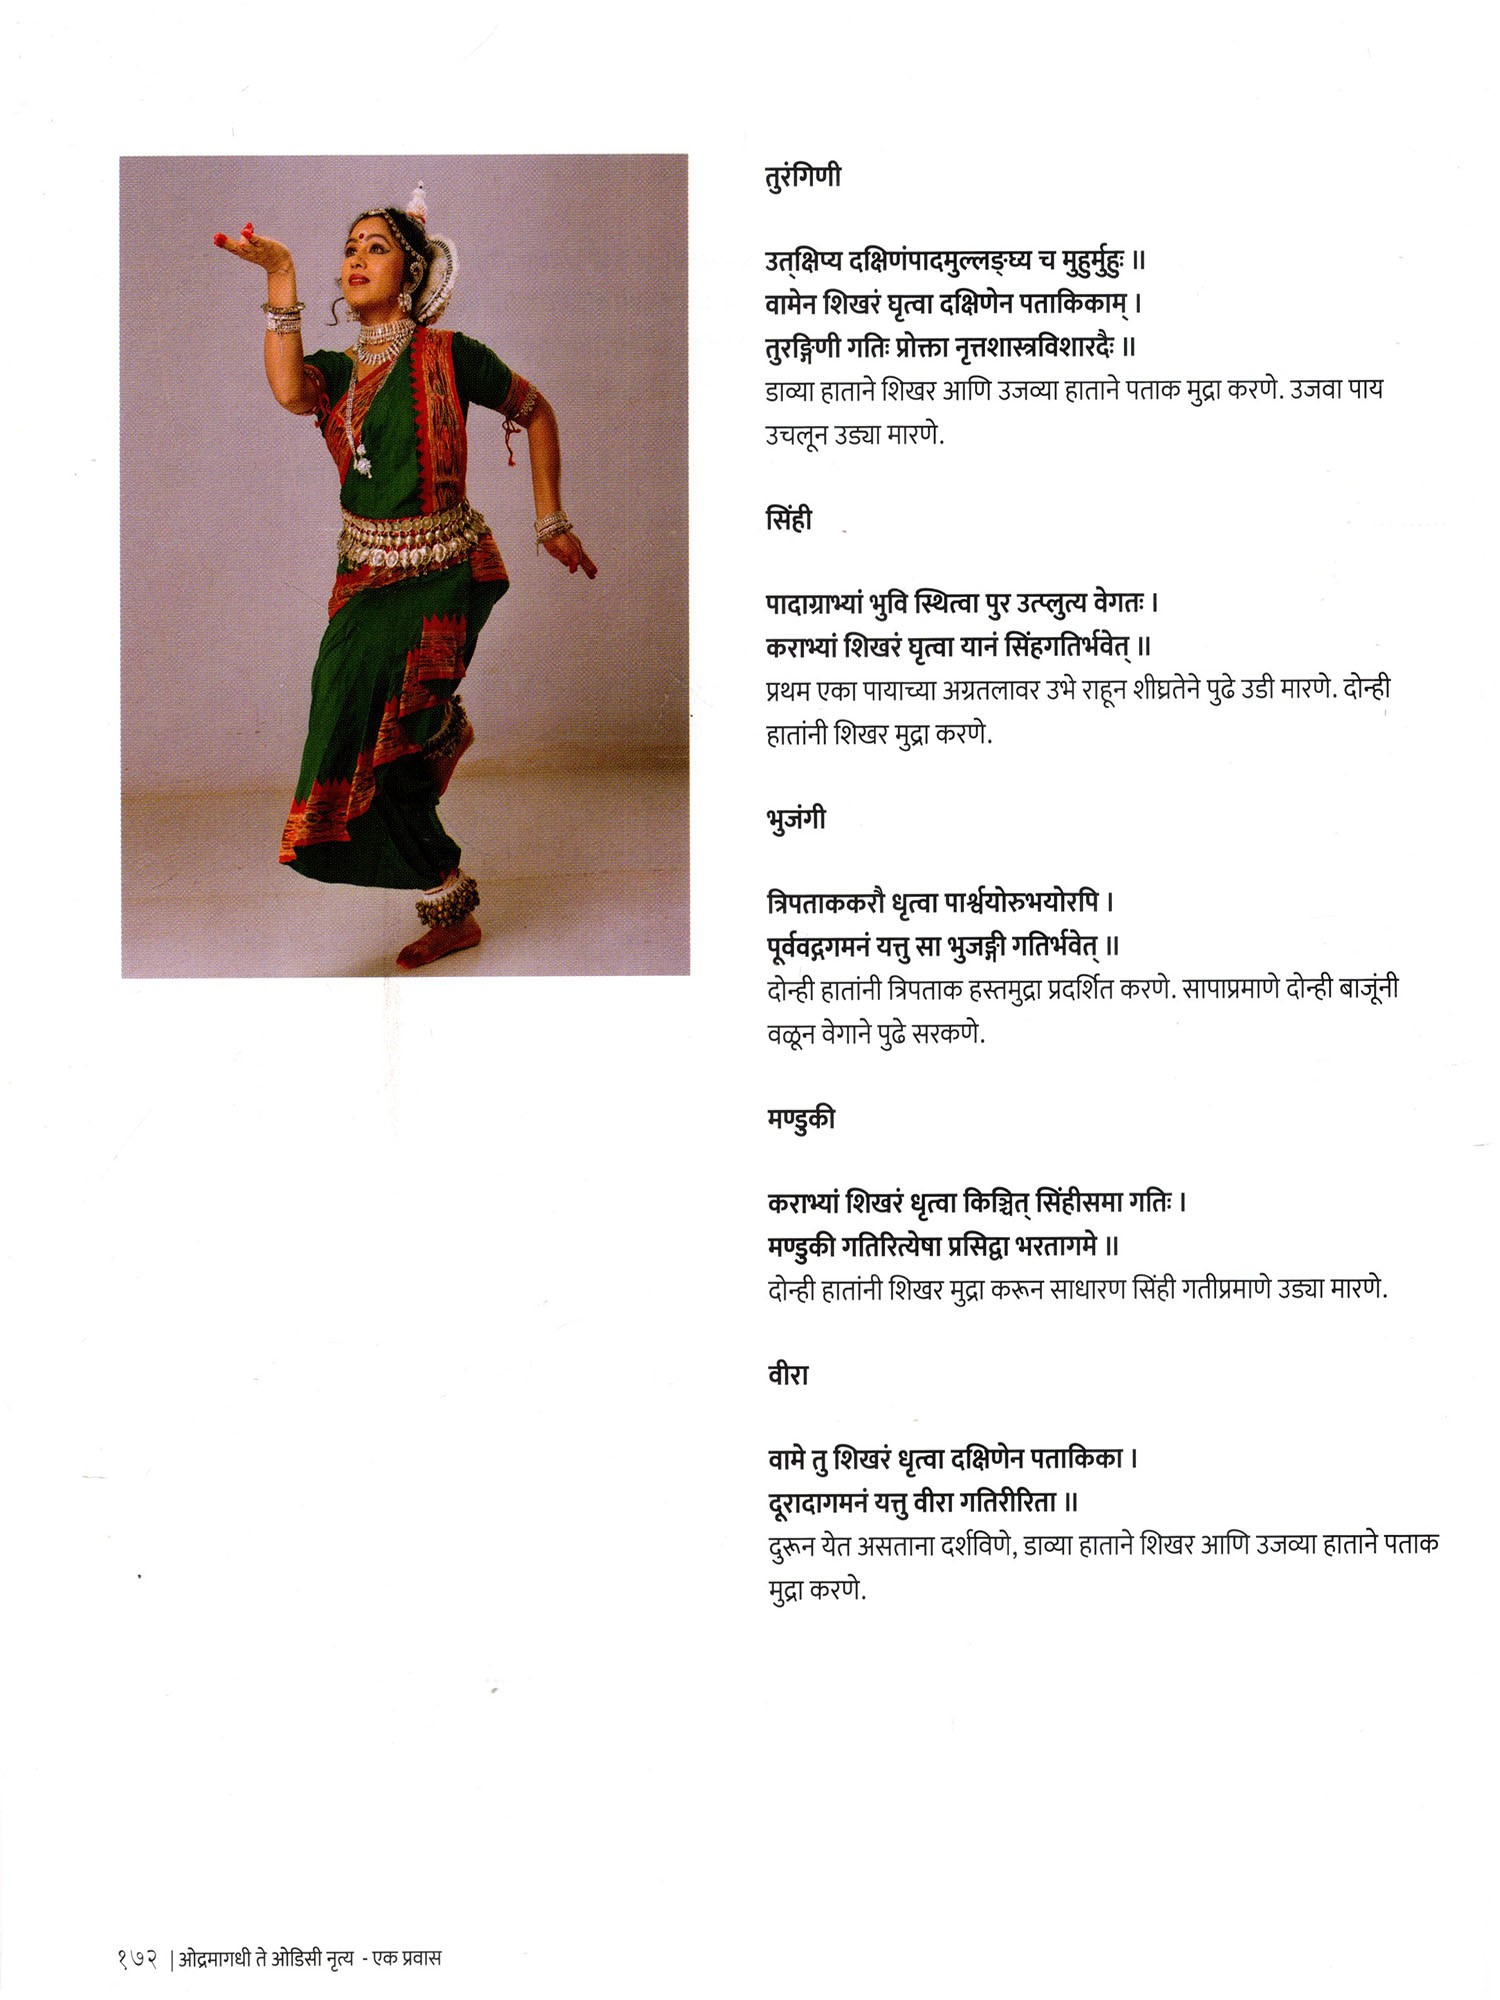 तुरंगिणी
उत्क्षिप्य दक्षिणंपादमुल्लङ्घ्य च मुहुर्मुहुः ॥
वामेन शिखरं घृत्वा दक्षिणेन पताकिकाम् ।
तुरङ्गिणी गतिः प्रोक्ता नृत्तशास्त्रविशारदैः ॥
डाव्या हाताने शिखर आणि उजव्या हाताने पताक मुद्रा करणे. उजवा पाय
उचलून उड्या मारणे.
सिंही
पादाग्राभ्यां भुवि स्थित्वा पुर उत्प्लुत्य वेगतः ।
कराभ्यां शिखरं घृत्वा यानं सिंहगतिर्भवेत् ॥
प्रथम एका पायाच्या अग्रतलावर उभे राहून शीघ्रतेने पुढे उडी मारणे. दोन्ही
हातांनी शिखर मुद्रा करणे.
भुजंगी
त्रिपताककरौ धृत्वा पार्श्वयोरुभयोरपि ।
पूर्ववद्गगमनं यत्तु सा भुजङ्गी गतिर्भवेत् ॥
दोन्ही हातांनी त्रिपताक हस्तमुद्रा प्रदर्शित करणे. सापाप्रमाणे दोन्ही बाजूंनी
वळून वेगाने पुढे सरकणे.
मण्डुकी
कराभ्यां शिखरं धृत्वा किञ्चित् सिंहीसमा गतिः ।
मण्डुकी गतिरित्येषा प्रसिद्वा भरतागमे ॥
दोन्ही हातांनी शिखर मुद्रा करून साधारण सिंही गतीप्रमाणे उड्या मारणे.
वीरा
वामे तु शिखरं धृत्वा दक्षिणेन पताकिका ।
दूरादागमनं यत्तु वीरा गतिरीरिता ॥
दुरून येत असताना दर्शविणे, डाव्या हाताने शिखर आणि उजव्या हाताने पताक
मुद्रा करणे.
१७२ | ओद्रमागधी ते ओडिसी नृत्य - एक प्रवास